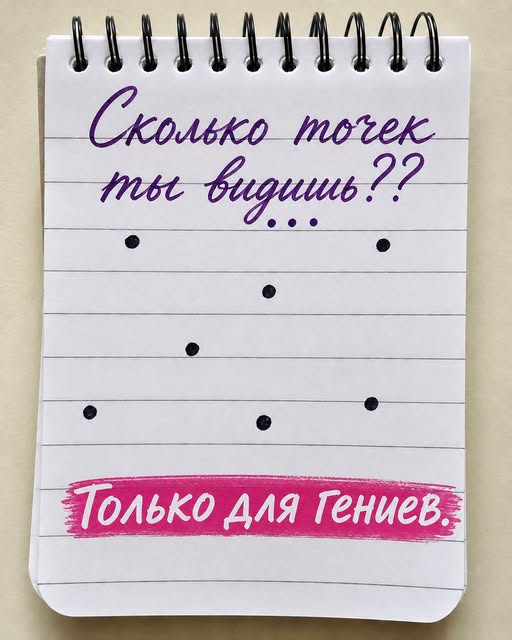 Сколько точек
ты видишь??
...
Только для гениев.